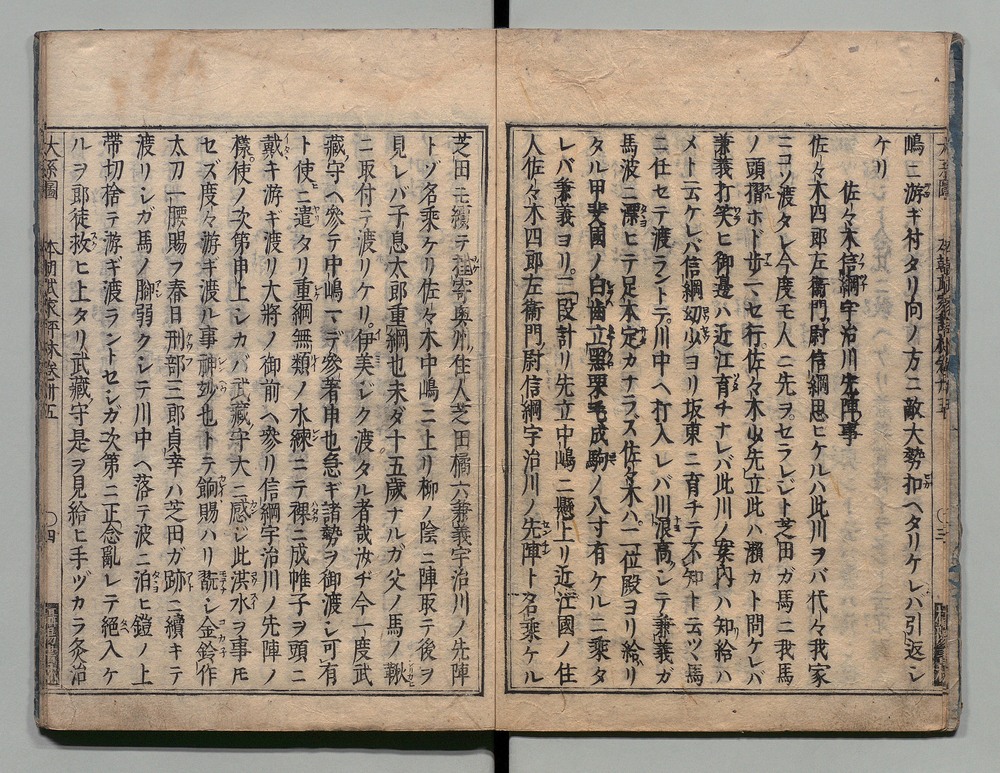 嶋ニ游ギ村タリ向ノ方ニ敵大勢扣ヘタリケレハ引返シ
ケリ
佐々木信綱宇治川先陣事
佐々木四郎左衛門尉信綱思ヒケルハ此川ヲバ代々我家
ニコソ渡タレ今度モ人ニ先ヲセラレジト芝田ガ馬ニ我馬
ノ頭摺ホドニ歩マセ行佐々木先ニ立此ハ瀬カト問ケレバ
兼義打笑ヒ御邊ハ近江育チナレバ此川ノ案内ハ知給ハ
メト云ケレバ信綱幼少ヨリ坂東ニ育チテ不知ト云ツヽ馬
ニ任セテ渡ラントテ川中ヘ打入レバ川浪高シテ兼義ガ
馬波ニ漂ヒテ足本定カナラス佐々木ハ二位殿ヨリ給リ
タル甲斐國ノ白歯立黒栗毛成駒ノ八寸有ケルニ乗タ
レバ兼義ヨリ二段計リ先立中嶋ニ懸上リ近江國ノ住
人佐々木四郎左衛門尉信綱宇治川ノ先陣ト名乗ケル
芝田モ續テ打寄奥州住人芝田橘六兼義宇治川ノ先陣
トゾ名乗ケリ佐々木中嶋ニ上リ柳ノ陰ニ陣取テ後ヲ
見レバ子息太郎重綱也未ダ十五歳ナルガ父ノ馬ノ鞦
ニ取付テ渡リケリ伊美シク渡タル者哉汝ヂ今一度武
藏守ヘ參テ中嶋マデ參著申也急ギ諸勢ヲ御渡シ可有
ト使ニ遣タリ重綱無類ノ水練ニテ裸ニ成帷子ヲ頭ニ
戴キ游ギ渡リ大將ノ御前ヘ參リ信綱宇治川ノ先陣ノ
樣使ノ次第申上シカバ武藏守大ニ感ジ此洪水ヲ事モ
セズ度々游ギ渡ル事神妙也トテ餉賜ハリ翫シ金鈴作
太刀一腰賜フ春日刑部三郎貞幸ハ芝田ガ跡ニ續キテ
渡リシガ馬ノ脚弱クシテ川中ヘ落テ波ニ泊ヒ鎧ノ上
帶切捨テ游ギ渡ラントセシガ次第ニ正念亂レテ絶入ケ
ルヲ郎徒救ヒ上タリ武藏守是ヲ見給ヒ手ヅカラ灸治
大系圖 本朝武家評林巻卅五 〇四